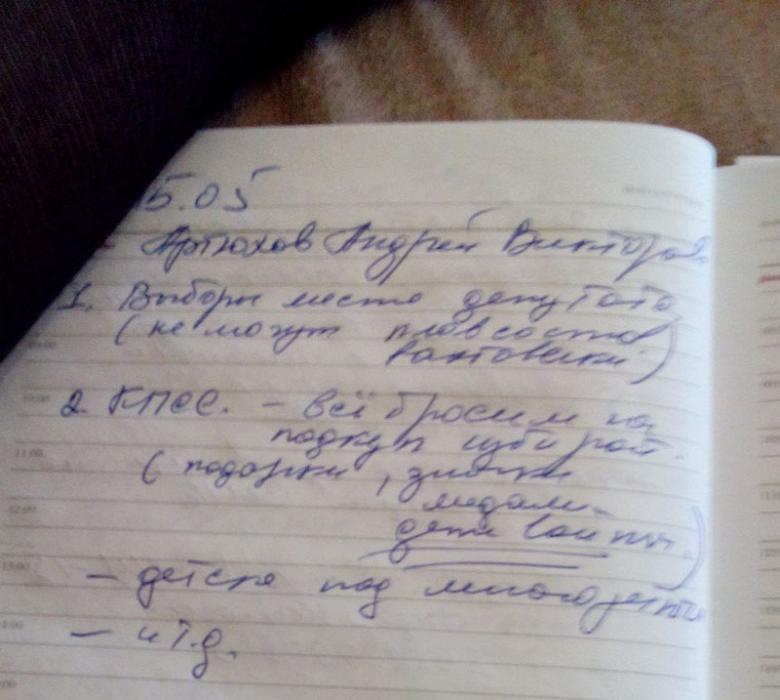 15.05
Артюхов Андрей Виктор
1. Выборы место депутата
(не могут плавсостав
вахтовики)
2. КПСС. - всё бросим на
подкуп избират.
(подарки, значки
медали
дети войны.)
- детске под многодетн
- и т.д.